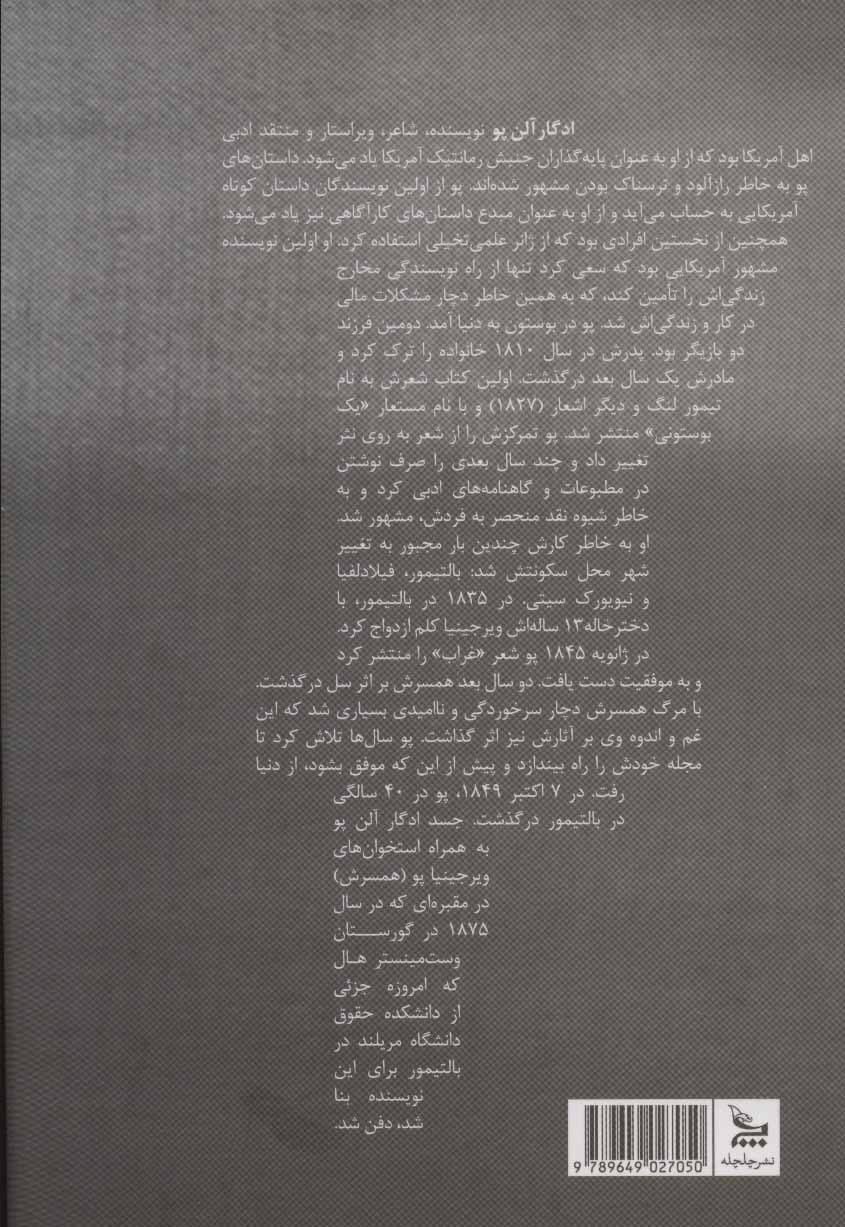 ادگار آلن پو نویسنده، شاعر، ویراستار و منتقد ادبی
اهل آمریکا بود که از او به عنوان پایه‌گذاران جنبش رمانتیک آمریکا یاد می‌شود. داستان‌های
پو به خاطر رازآلود و ترسناک بودن مشهور شده‌اند. پو از اولین نویسندگان داستان کوتاه
آمریکایی به حساب می‌آید و از او به عنوان مبدع داستان‌های کارآگاهی نیز یاد می‌شود.
همچنین از نخستین افرادی بود که از ژانر علمی‌تخیلی استفاده کرد. او اولین نویسنده
مشهور آمریکایی بود که سعی کرد تنها از راه نویسندگی مخارج
زندگی‌اش را تأمین کند، که به همین خاطر دچار مشکلات مالی
در کار و زندگی‌اش شد. پو در بوستون به دنیا آمد. دومین فرزند
دو بازیگر بود. پدرش در سال ۱۸۱۰ خانواده را ترک کرد و
مادرش یک سال بعد درگذشت. اولین کتاب شعرش به نام
تیمور لنگ و دیگر اشعار (۱۸۲۷) و با نام مستعار «یک
بوستونی» منتشر شد. پو تمرکزش را از شعر به روی نثر
تغییر داد و چند سال بعدی را صرف نوشتن
در مطبوعات و گاهنامه‌های ادبی کرد و به
خاطر شیوه نقد منحصر به فردش، مشهور شد.
او به خاطر کارش چندین بار مجبور به تغییر
شهر محل سکونتش شد: بالتیمور، فیلادلفیا
و نیویورک سیتی. در ۱۸۳۵ در بالتیمور، با
دخترخاله ۱۳ ساله‌اش ویرجینیا کلم ازدواج کرد.
در ژانویه ۱۸۴۵ پو شعر «غراب» را منتشر کرد
و به موفقیت دست یافت. دو سال بعد همسرش بر اثر سل درگذشت.
با مرگ همسرش دچار سرخوردگی و ناامیدی بسیاری شد که این
غم و اندوه وی بر آثارش نیز اثر گذاشت. پو سال‌ها تلاش کرد تا
مجله خودش را راه بیندازد و پیش از این که موفق بشود، از دنیا
رفت. در ۷ اکتبر ۱۸۴۹، پو در ۴۰ سالگی
در بالتیمور درگذشت. جسد ادگار آلن پو
به همراه استخوان‌های
ویرجینیا پو (همسرش)
در مقبره‌ای که در سال
۱۸۷۵ در گورستان
وست‌مینستر هال
که امروزه جزئی
از دانشکده حقوق
دانشگاه مریلند در
بالتیمور برای این
نویسنده بنا
شد، دفن شد.
نشر چلچله
9 789649 027050